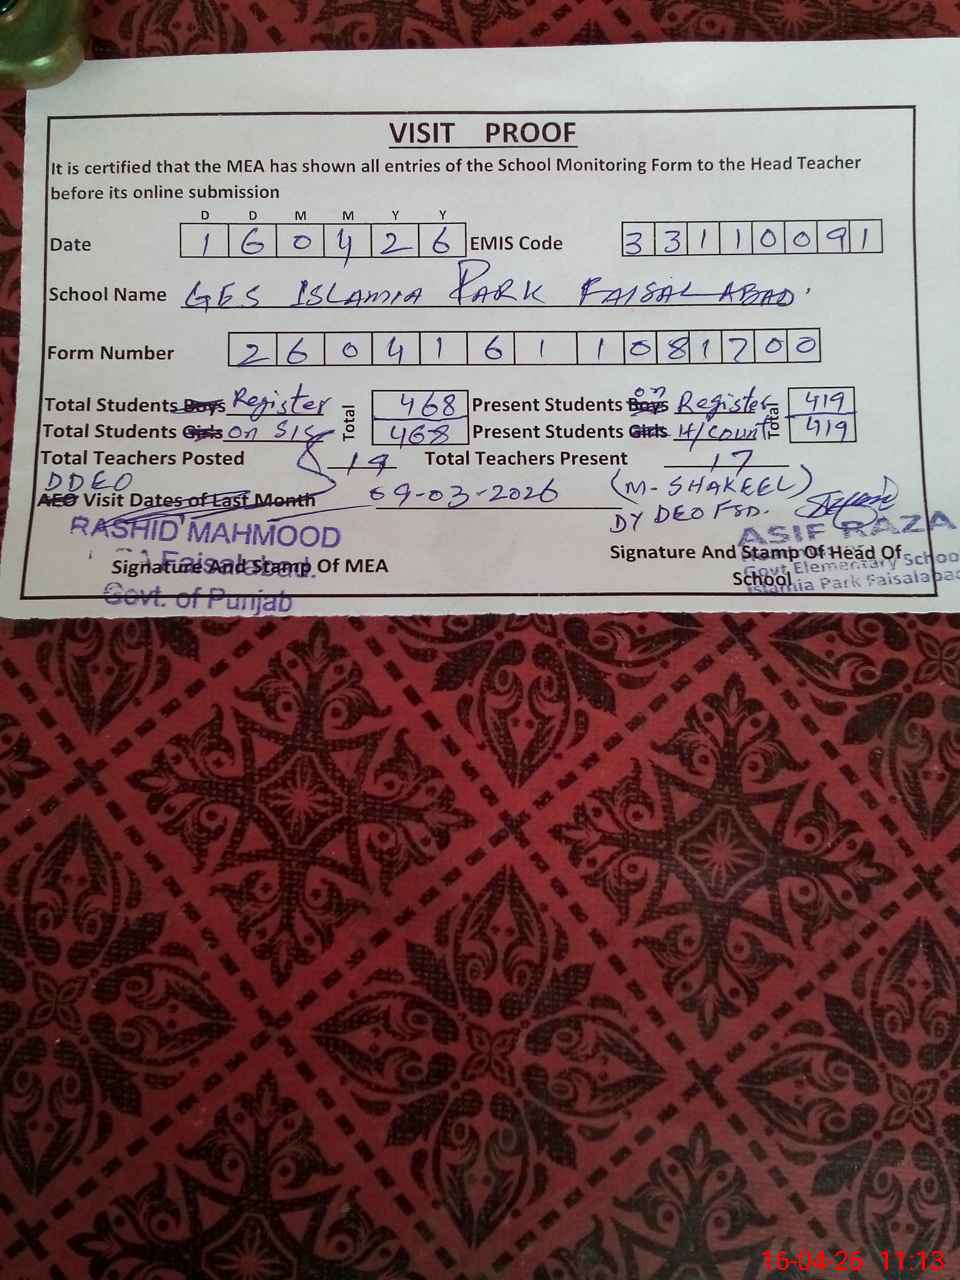 VISIT PROOF
It is certified that the MEA has shown all entries of the School Monitoring Form to the Head Teacher
before its online submission
D D M M Y Y
Date 1 6 0 4 2 6 EMIS Code 3 3 1 1 0 0 9 1
School Name GES ISLAMIA PARK FAISALABAD
Form Number 2 6 0 4 1 6 1 1 0 8 1 7 0 0
Total Students Boys Register Total 468 Present Students Boys on Register Total 419
Total Students Girls on SIS 468 Present Students Girls H/Count 419
Total Teachers Posted 19 Total Teachers Present 17
DDEO
AEO Visit Dates of Last Month 09-03-2026 (M. SHAKEEL)
DY DEO FSD.
RASHID MAHMOOD
Faisalabad.
Signature And Stamp Of MEA
Govt. of Punjab
ASIF RAZA
Signature And Stamp Of Head Of
School
Govt. Elementary School
Islamia Park Faisalabad
16-04-26 11:13